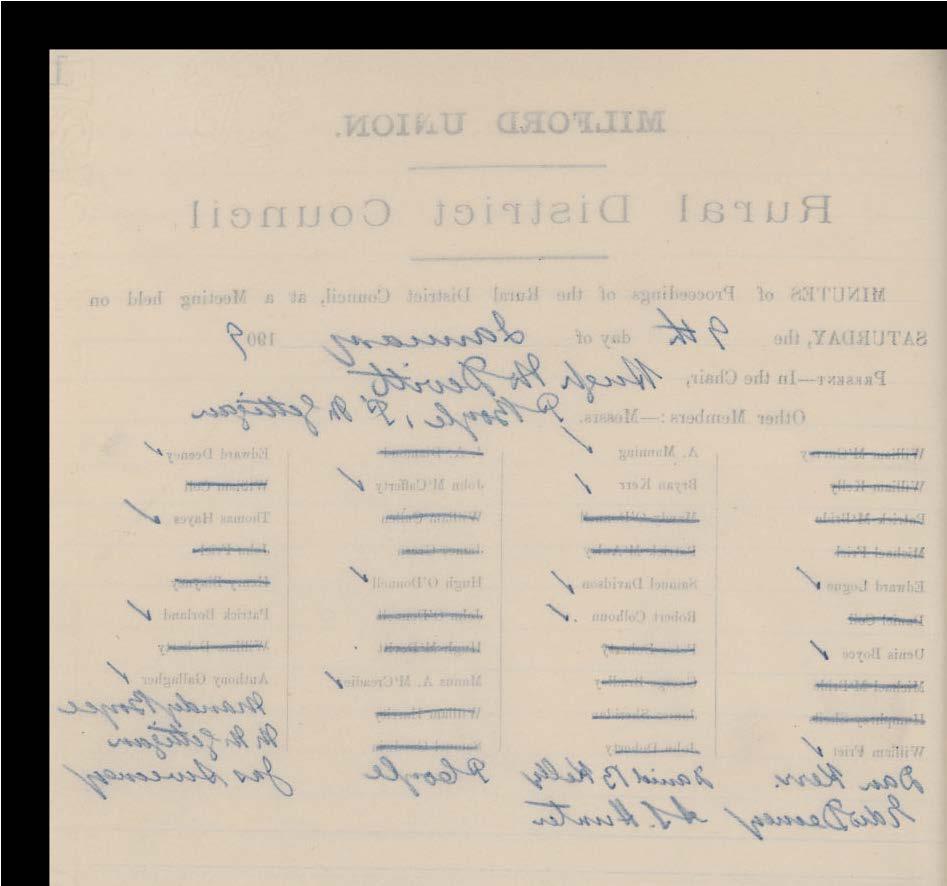 MILFORD UNION.
Rural District Council
MINUTES of Proceedings of the Rural District Council, at a Meeting held on
SATURDAY, the 9th day of January 1909
PRESENT—In the Chair, Hugh McDevitt
Other Members:—Messrs. P Boyle, P McGettigan
William A. Manning Edward Deeney
William Kelly Bryan Kerr John McCafferty William Coll
Patrick McBride William Thomas Hayes
Michael Friel Patrick James John Friel
Edward Logue Samuel Davidson Hugh O'Donnell Henry Blayney
Daniel Coll Robert Colhoun John O'Donnell Patrick Borland
Denis Boyce Hugh McDevitt William Doherty
Michael McBride George Bradley Manus A. McCreadie Anthony Gallagher
James Sheridan William Boyce
William Friel John Doherty McGettigan
Dan Kerr. Daniel B Kelly P Coyle Jas Sweeney
Edw Deeney A.S. Hunter